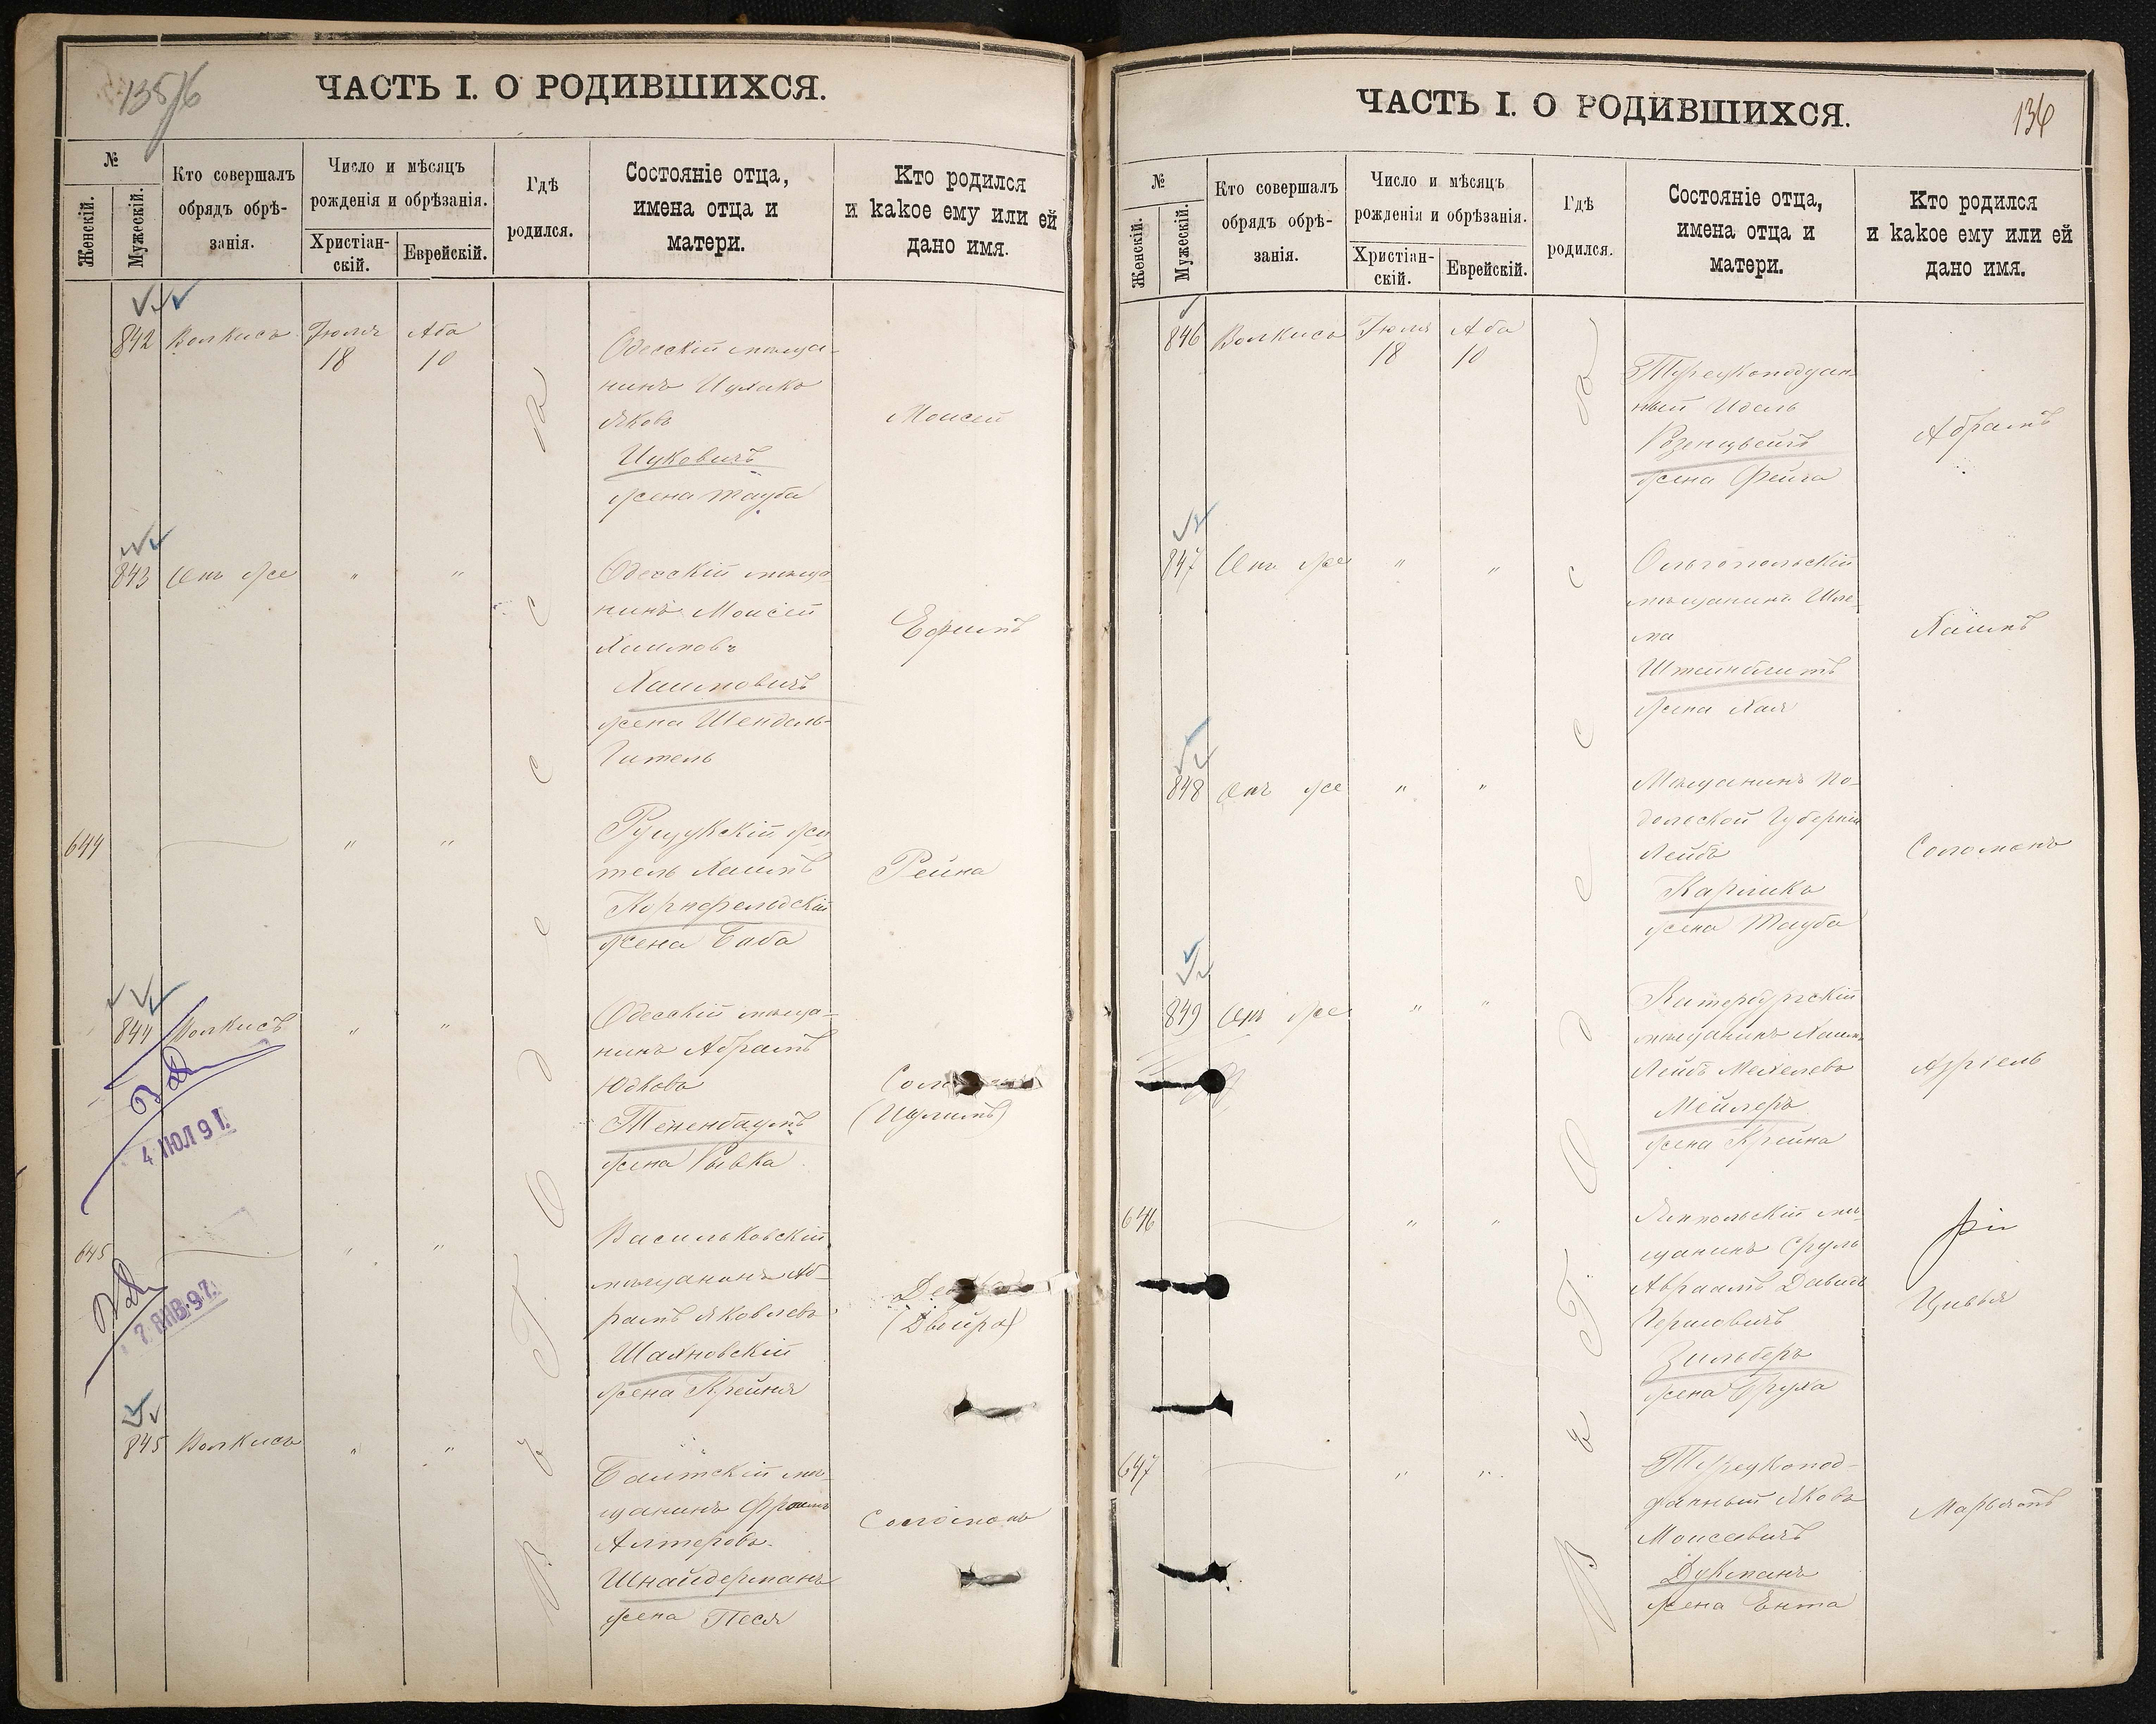 135/6
ЧАСТЬ I. О РОДИВШИХСЯ.
№
Женскій.
Мужескій.
Кто совершалъ
обрядъ обрѣ-
занія.
Число и мѣсяцъ
рожденія и обрѣзанія.
Христіан-
скій.
Еврейскій.
Гдѣ
родился.
Состояніе отца,
имена отца и
матери.
Кто родился
и какое ему или ей
дано имя.
Въ г. Одессѣ
842 Волкисъ Іюля 18 Аба 10
Одесскій мѣща-
нинъ Ицлико
Яковъ
Ицковичъ
жена Тауба
Моисей
843 Онъ же " "
Одесскій мѣща
нинъ Моисей
Хаимовъ
Хаимовичъ
жена Шендель-
Гитель
Ефимъ
644 " "
Рущукскій жи
тель Хаимъ
Корнфельдскій
жена Баба
Рейна
844 Волкисъ " "
Одесскій мѣща-
нинъ Абрамъ
Юдковъ
Тененбаумъ
жена Рывка
Соло
4 ІЮЛ 91.
645 " "
Васильковскій
мѣщанинъ Аб-
рамъ Яковлевъ
Шахновскій
жена Крейня
(Двейра)
7 ЯНВ. 97.
845 Волкисъ " "
Балтскій мѣ-
щанинъ Фроимъ
Алтеровъ
Шнайдерманъ
жена Песя
Соломонъ
ЧАСТЬ I. О РОДИВШИХСЯ.
136
№
Женскій.
Мужескій.
Кто совершалъ
обрядъ обрѣ-
занія.
Число и мѣсяцъ
рожденія и обрѣзанія.
Христіан-
скій.
Еврейскій.
Гдѣ
родился.
Состояніе отца,
имена отца и
матери.
Кто родился
и какое ему или ей
дано имя.
846 Волкисъ Іюля 18 Аба 10
Турецкоподдан-
ный Идель
Розенцвейгъ
жена Фейга
Абрамъ
847 Онъ же " "
Ольгопольскій
мѣщанинъ Шле-
ма
жена Хая
Хаимъ
848 Онъ же " "
Мѣщанинъ По-
дольской Губерніи
Лейбъ
Карликъ
жена Тауба
Соломонъ
849 Онъ же " "
мѣщанинъ Хаим-
Лейбъ Мехелевъ
Мейлеръ
жена Крейна
Азріель
646 " "
Ямпольскій мѣ-
щанинъ Сруль
Авраамъ Давидъ
Гершовичъ
Зильберъ
жена Фрума
Цивья
647 " "
Турецкопод-
данный Яковъ
Моисеевичъ
Дукманъ
жена Ента
Марьямъ
Въ г. Одессѣ